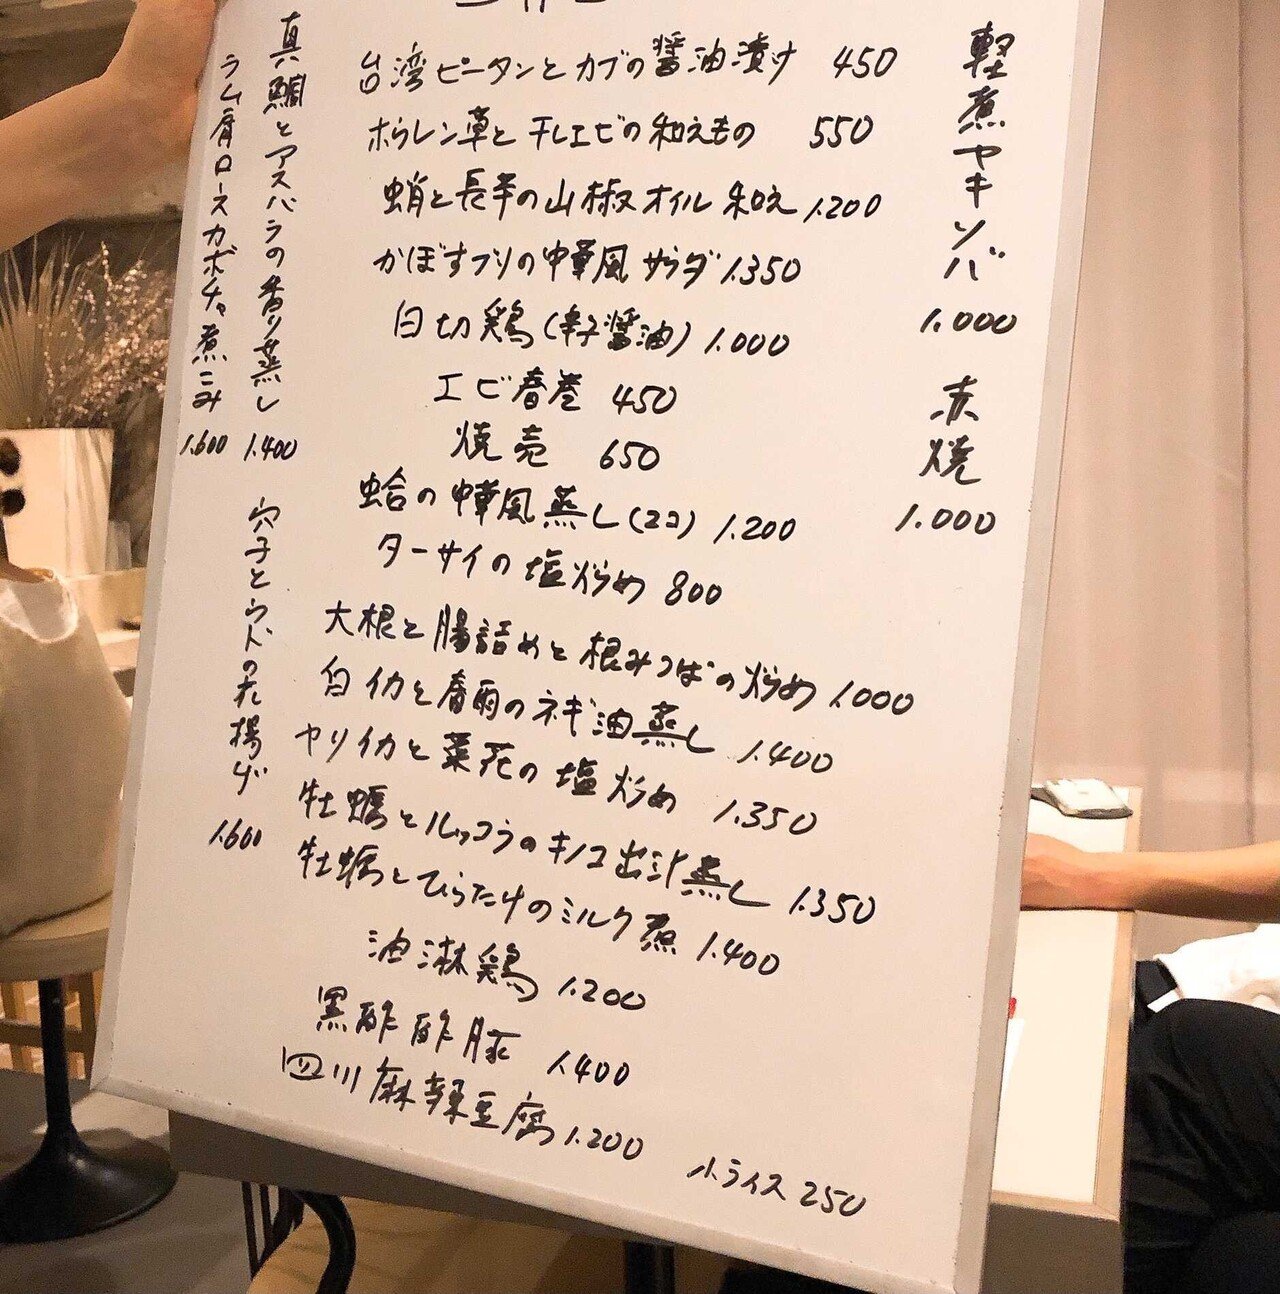 台湾ピータンとカブの醤油漬け 450
ホウレン草と干しエビの和えもの 550
蛸と長芋の山椒オイル和え 1.200
かぼすブリの中華風サラダ 1.350
白切鶏(辛子醤油) 1.000
エビ春巻 450
焼売 650
蛤の中華風蒸し(2コ) 1.200
ターサイの塩炒め 800
大根と腸詰めと根みつばの炒め 1.000
白イカと春雨のネギ油蒸し 1.400
ヤリイカと菜花の塩炒め 1.350
牡蠣とルッコラのキノコ出汁蒸し 1.350
牡蠣とひらたけのミルク煮 1.400
油淋鶏 1.200
黒酢酢豚 1.400
四川麻辣豆腐 1.200
小ライス 250
軽煮ヤキソバ
1.000
赤焼
1.000
真鯛とアスパラの香り蒸し
1.400
ラム肩ロースカボチャ煮こみ
1.600
穴子とウドの花揚げ
1.600